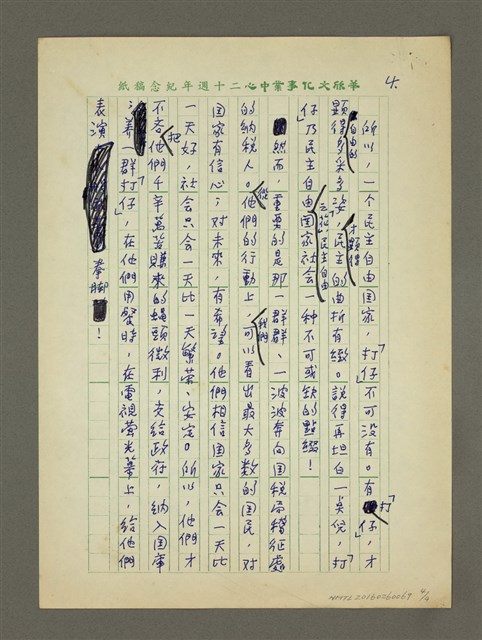 華欣文化事業中心二十週年紀念稿紙
4.
所以,一个民主自由国家,「打仔」不可没有。有「打仔」,才
顕得自由的多采多姿,才顕得民主的曲折有緻。說得再坦白一奌呢,「打
仔」乃民主自由之花,民主自由国家社会一种不可或缺的點綴!
然而,重要的是那一群群、一波波奔向国税局稽征處
的納税人。從他們的行動上,我們可以看出最大多数的国民,对
国家有信心;对未來,有希望。他們相信国家只会一天比
一天好,社会只会一天比一天繁荣、安定。所以,他們才
不吝把他們千辛萬苦賺來的蝇頭微利,交給政府,納入国庫
養一群「打仔」,在他們閒暇時,在電視螢光幕上,給他們
表演拳脚!
NMTL20160260069
4/4